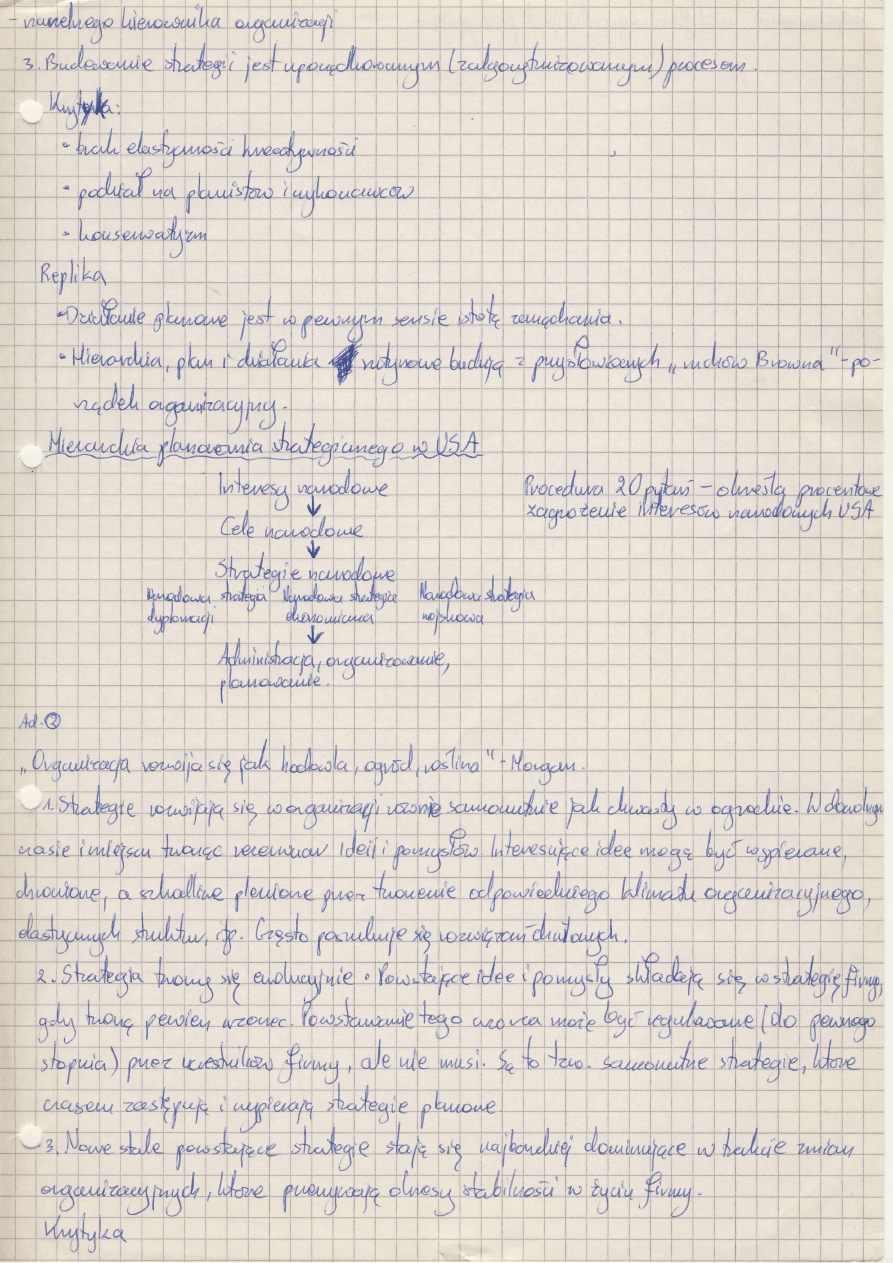 - naczelnego kierownika organizacji
3. Budowanie strategii jest uporządkowanym (zalgorytmizowanym) procesem.
Krytyka:
• brak elastyczności kreatywności
• podział na planistów i wykonawców
• konserwatyzm
Replika
• Działanie planowe jest w pewnym sensie istotą zarządzania.
• Hierarchia, plan i działania rutynowe budują z przysłowiowych „ruchów Browna" - po-
rządek organizacyjny.
Hierarchia planowania strategicznego w USA
Interesy narodowe
↓
Cele narodowe
↓
Strategie narodowe
Narodowa strategia dyplomacji
Narodowa strategia ekonomiczna
Narodowa strategia wojskowa
↓
Administracja, organizowanie,
planowanie.
Procedura 20 pytań – określa procentowe
zagrożenie interesów narodowych USA
Ad. ②
„Organizacja rozwija się jak hodowla, ogród, roślina" - Morgan.
1. Strategie rozwijają się w organizacji samorzutnie jak chwasty w ogrodzie. W dowolnym
czasie i miejscu tworząc rezerwuar ideii i pomysłów Interesujące idee mogą być wspierane,
chronione, a szkodliwe plenione przez tworzenie odpowiedniego klimatu organizacyjnego,
elastycznych struktur, itp. Często poszukuje się rozwiązań
2. Strategia tworzy się ewolucyjnie. Powstające idee i pomysły składają się w strategię firmy,
gdy tworzą pewien wzorzec. Powstawanie tego wzorca może być regulowane (do pewnego
stopnia) przez uczestników firmy, ale nie musi. Są to tzw. samorzutne strategie, które
czasem zastępują i wypierają strategie planowe.
3. Nowe stale powstające strategie stają się najbardziej dominujące w trakcie zmian
organizacyjnych, które przerywają okresy stabilności w życiu firmy.
Krytyka